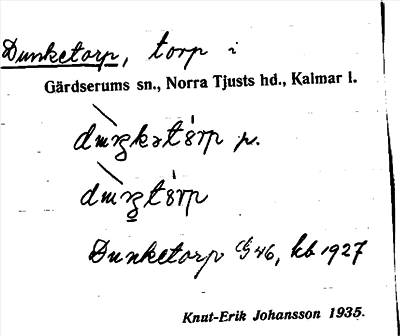 Dunketorp, torp i
Gärdserums sn., Norra Tjusts hd., Kalmar l.
p.
Dunketorp GS 46, kb 1927
Knut-Erik Johansson 1935.